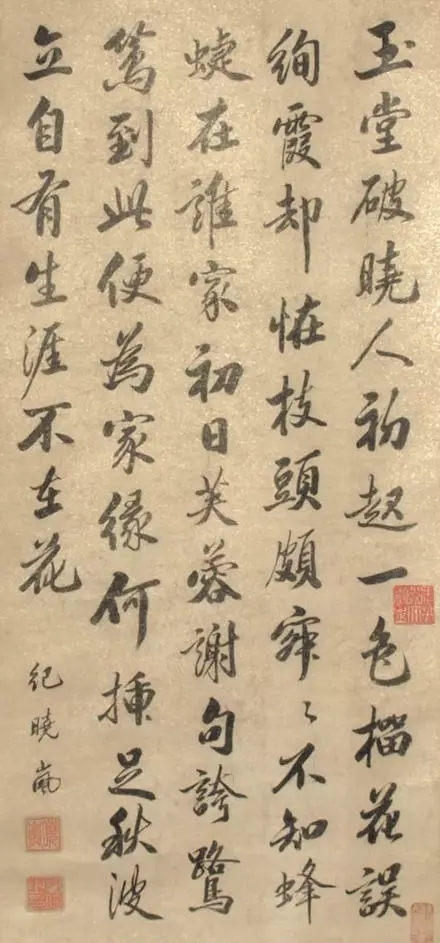 玉堂破曉人初起一色榴花誤
絢霞却怪枝頭頗寂々不知蜂
蜨在誰家初日芙蓉謝句誇鷺
鷥到此便為家緣何插足秋波
立自有生涯不在花
紀曉嵐